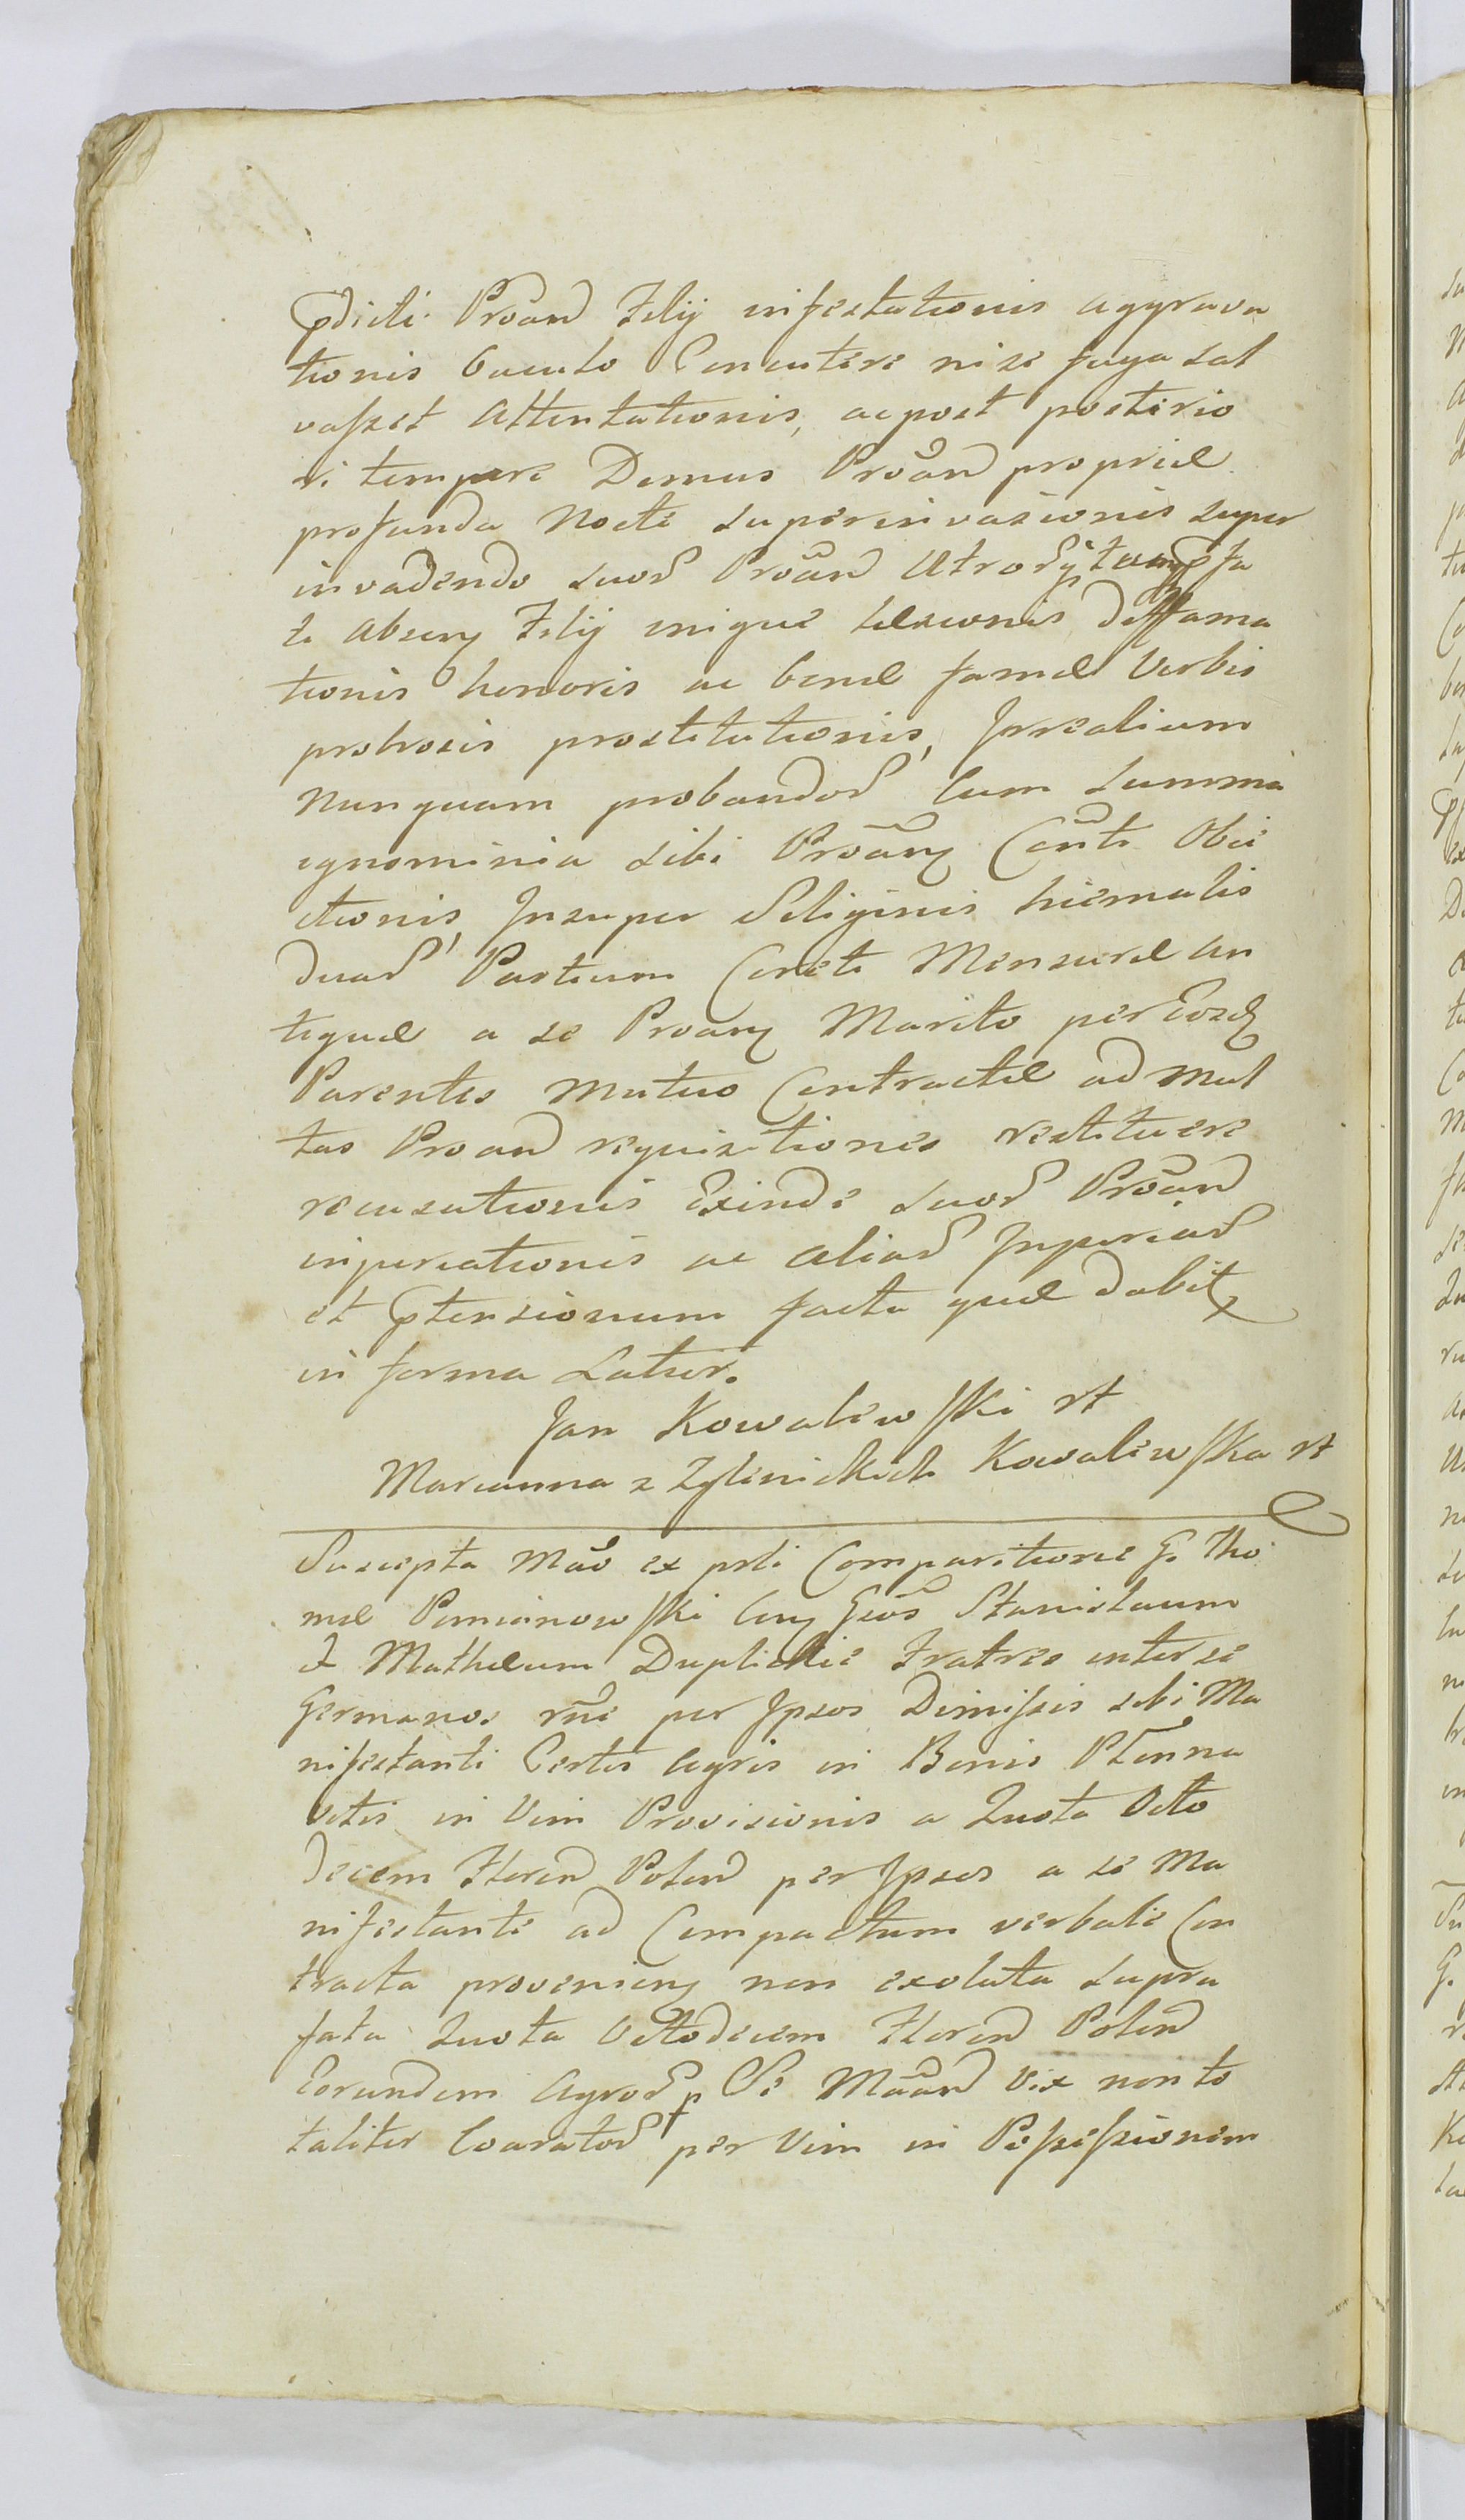 pdicti Proand Filij infestationis aggrava
tionis baculo Concutere nise fuga sal
vasset Attentationis, ac post posterio
ri tempore Domus Proand propriæ
profunda Nocte superinvasionis super
invadendo suor Proand Utror
te absen Filij inique læsionis diffama
tionis honoris ac bonæ famæ Verbis
probrosis prostitutionis, Irrealium
nunquam probandor Cum summa
ignominia sibi Proan Conti Obie
ctionis, Insuper Siliginis hiemalis
duar Partium Coreti Mensuræ an
tiquæ a se Proan Marito per Eosd
Parentes mutuo Contractæ ad mul
tas Proand requisitiones restituere
recusationis Exinde suor Proand
injuriationis ac aliar Injuriar
et ptensionum facta quæ dabit
in forma Latior.
Jan Kowalewski st
Marianna z Kowalewska st
Suscepta Mao ex prti Comparitione G. Tho
mæ Pomianowski Con Geos Stanislaum
et Mathæum Duplickie Fratres inter se
Germanos rne per Ipsos Dimissis sibi Ma
nifestanti Certis Agris in Bonis Plonna
Vetis in Vim Provisionis a Quota Octo
decem Floren Polon per Ipsos a se Ma
nifestante ad Compactum verbale Con
tracta provenien non exoluta supra
fata Quota Octodecim Floren Polon
Eorundem Agror p Se Maand Vix non to
taliter Coarator per Vim in Possessionem